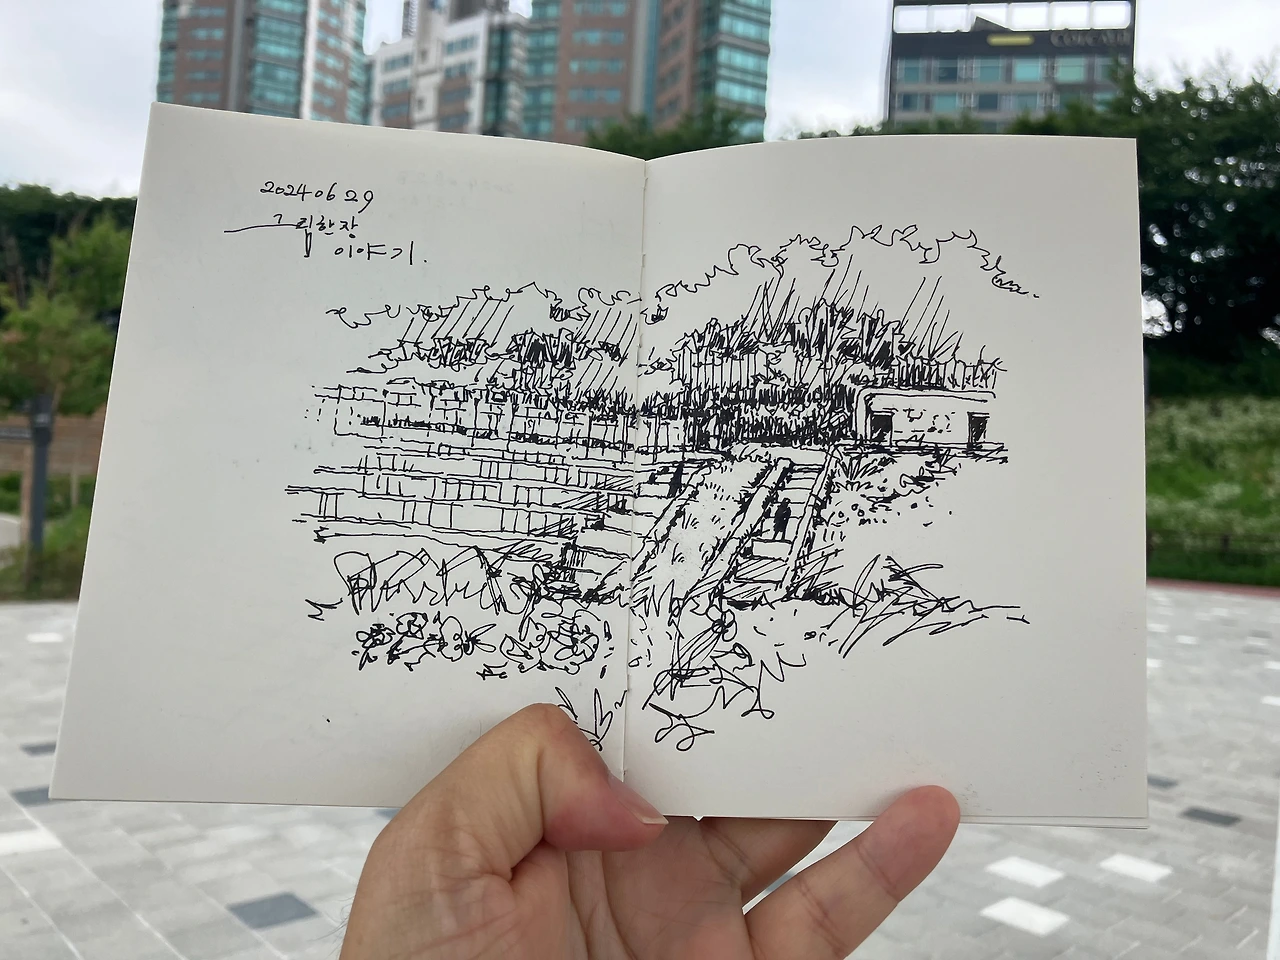 2024 06 29
그림한장
이야기.